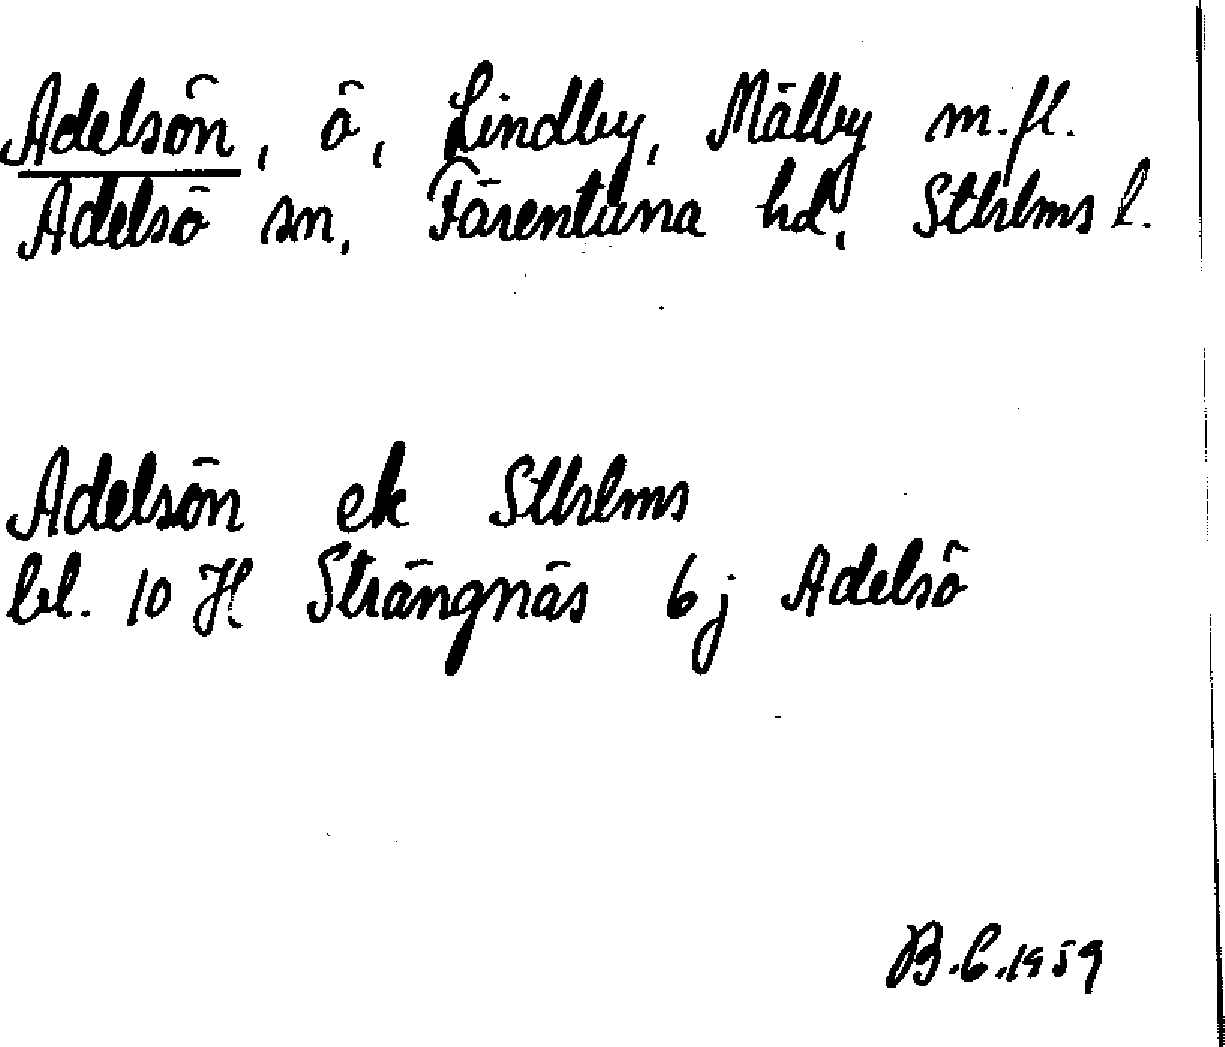 Adelsön, ö, Lindby, Mälby m.fl.
Adelsö sn, Färentuna hd, Sthlms l.
Adelsön ek Sthlms
bl. 10 H Strängnäs 6j Adelsö
B.C.1959